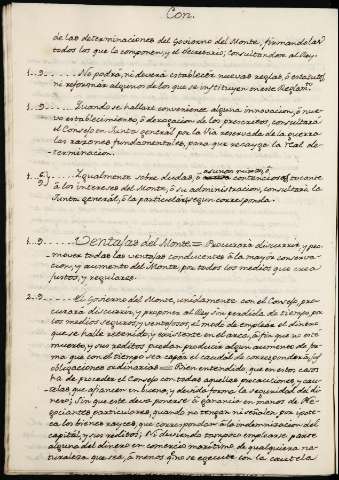 Con.
de las determinaciones del Govierno del Monte, firmandolas
todos los que la componen, y el Secretario; Consultandola al Rey.
1. 9. No podrá, ni deverá establecer nuevas reglas, ó estatutos
ni reformar algunos de los que se instituyen en este Reglam.to
1. 9. Quando se hallare conveniente alguna innovacion, ó nue-
vo establecimiento, ó derogacion de los prescritos, consultará
el Consejo en Junta general por la via reservada de la guerra
las razones fundamentales, para que recayga la real de-
terminacion.
1. 9. Igualmente sobre dudas, ó asuntos contenciosos tocante
á los intereses del Monte, ó su administracion, consultará la
Junta general, ó la particular, segun corresponda.
1. 9. Ventajas del Monte = Procurará discurrir, y pro-
mover todas las ventajas conducentes á la mayor conserva-
cion, y aumento del Monte por todos los medios que crea
justos, y regulares.
2. 9. El Govierno del Monte, unidamente con el Consejo pro-
curará discurrir, y proponer al Rey sin perdida de tiempo por
los medios seguros, y ventajosos, el modo de emplear el dinero
que se halle retenido, y existente en el arca, á fin que no esté
muerto, y sus reditos puedan producir algun aumento de for-
ma que con el tiempo sea capaz el caudal de corresponder á las
obligaciones ordinarias = Bien entendido, que en estos casos
ha de proceder el Consejo con todas aquellas precauciones, y cau-
telas que afiancen en buena, y devida forma la seguridad del di-
nero; Sin que este deva ponerse á ganancia en manos de Ne-
gociantes particulares, quando no tengan ni señalen, por ipote-
ca los bienes rayces, que correspondan á la indemnizacion del
capital, y sus reditos; Ni deviendo tampoco emplearse parte
alguna del dinero en comercio maritimo de qualquiera na-
turaleza que sea, á menos q.e no se execute con la cautela